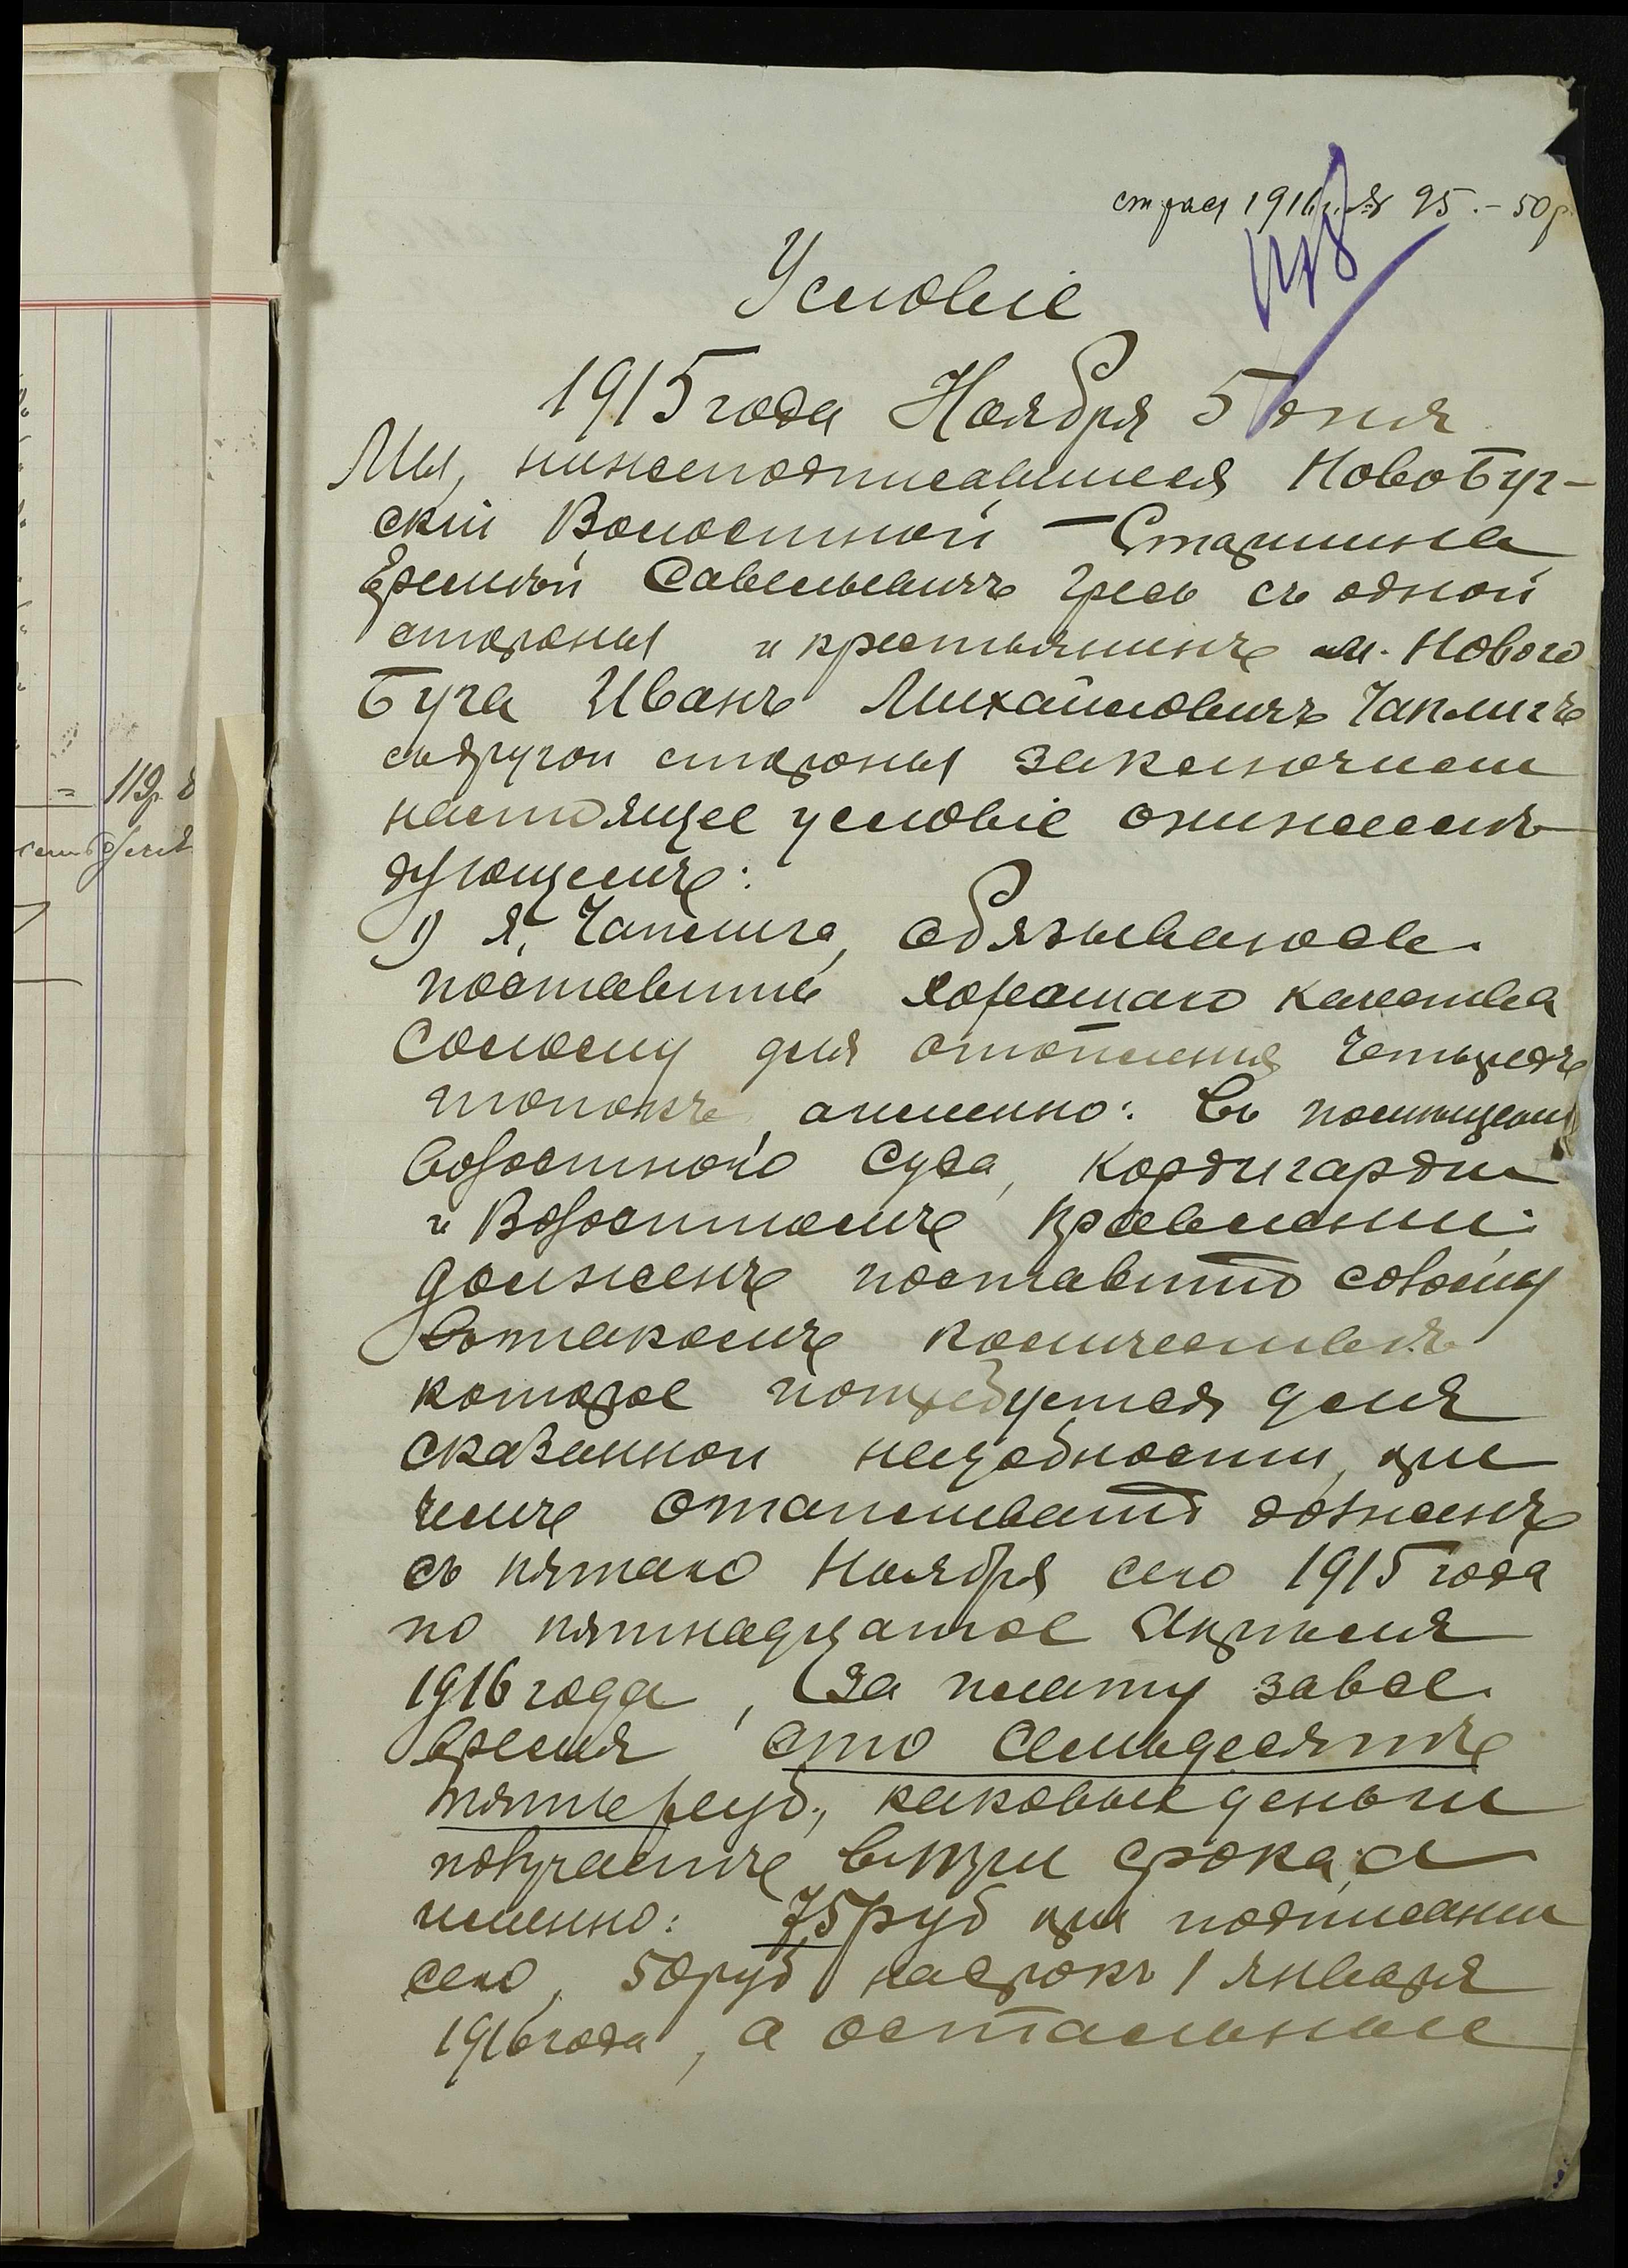 ст расх 1916 г. № 95. - 50 р.
Условіе
1915 года Ноября 5 дня
Мы, нижеподписавшиеся Новобуг-
скій Волостной Старшина
Еремѣй Савельевичъ Гресь съ одной
стороны и крестьянинъ м. Нового
Буга Иванъ Михайловичъ Чаплигъ
съ другой стороны заключили
настоящее условіе о нижеслѣ
дующемъ:
1) Я, Чаплига, обязываюсь
поставить хорошаго качества
солому для отопленія четырехъ
топокъ, а именно: въ помѣщеніи
Волостного Суда, Кордигардіи
и Волостномъ Правленіи:
долженъ поставить солому
въ такомъ количествѣ
которое потребуется для
сказанной надобности, при
чемъ отапливать долженъ
съ пятаго Ноября сего 1915 года
по пятнадцатое Апрѣля
1916 года, за плату за все
время сто семьдесятъ
пять руб., каковые деньги
получаетъ въ три срока, а
именно: 75 руб при подписаніи
сего, 50 руб на срокъ 1 января
1916 года, а остальные
= 119 р. 8